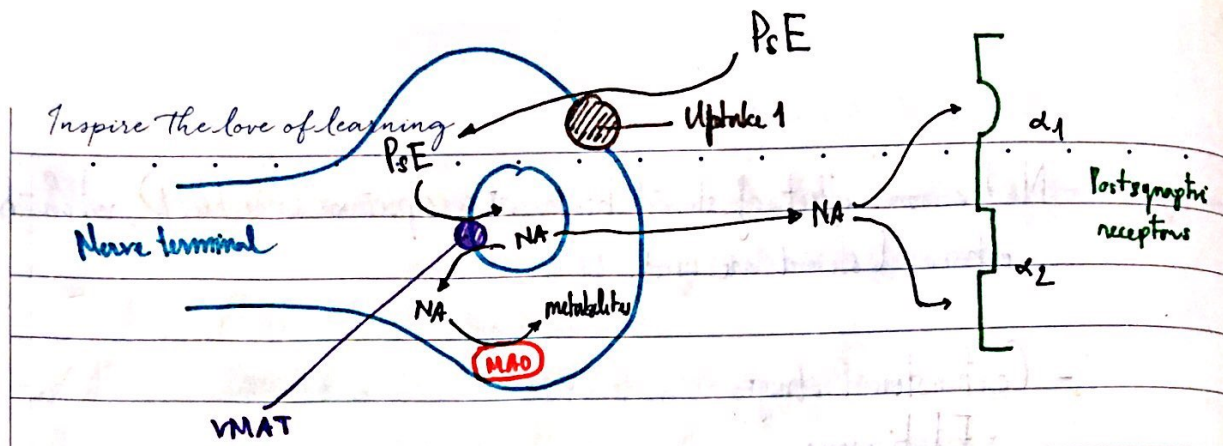 PsE
Inspire the love of learning
Uptake 1
PsE
α1
Postsynaptic
receptors
Nerve terminal
NA
NA
α2
NA
metabolites
MAO
VMAT